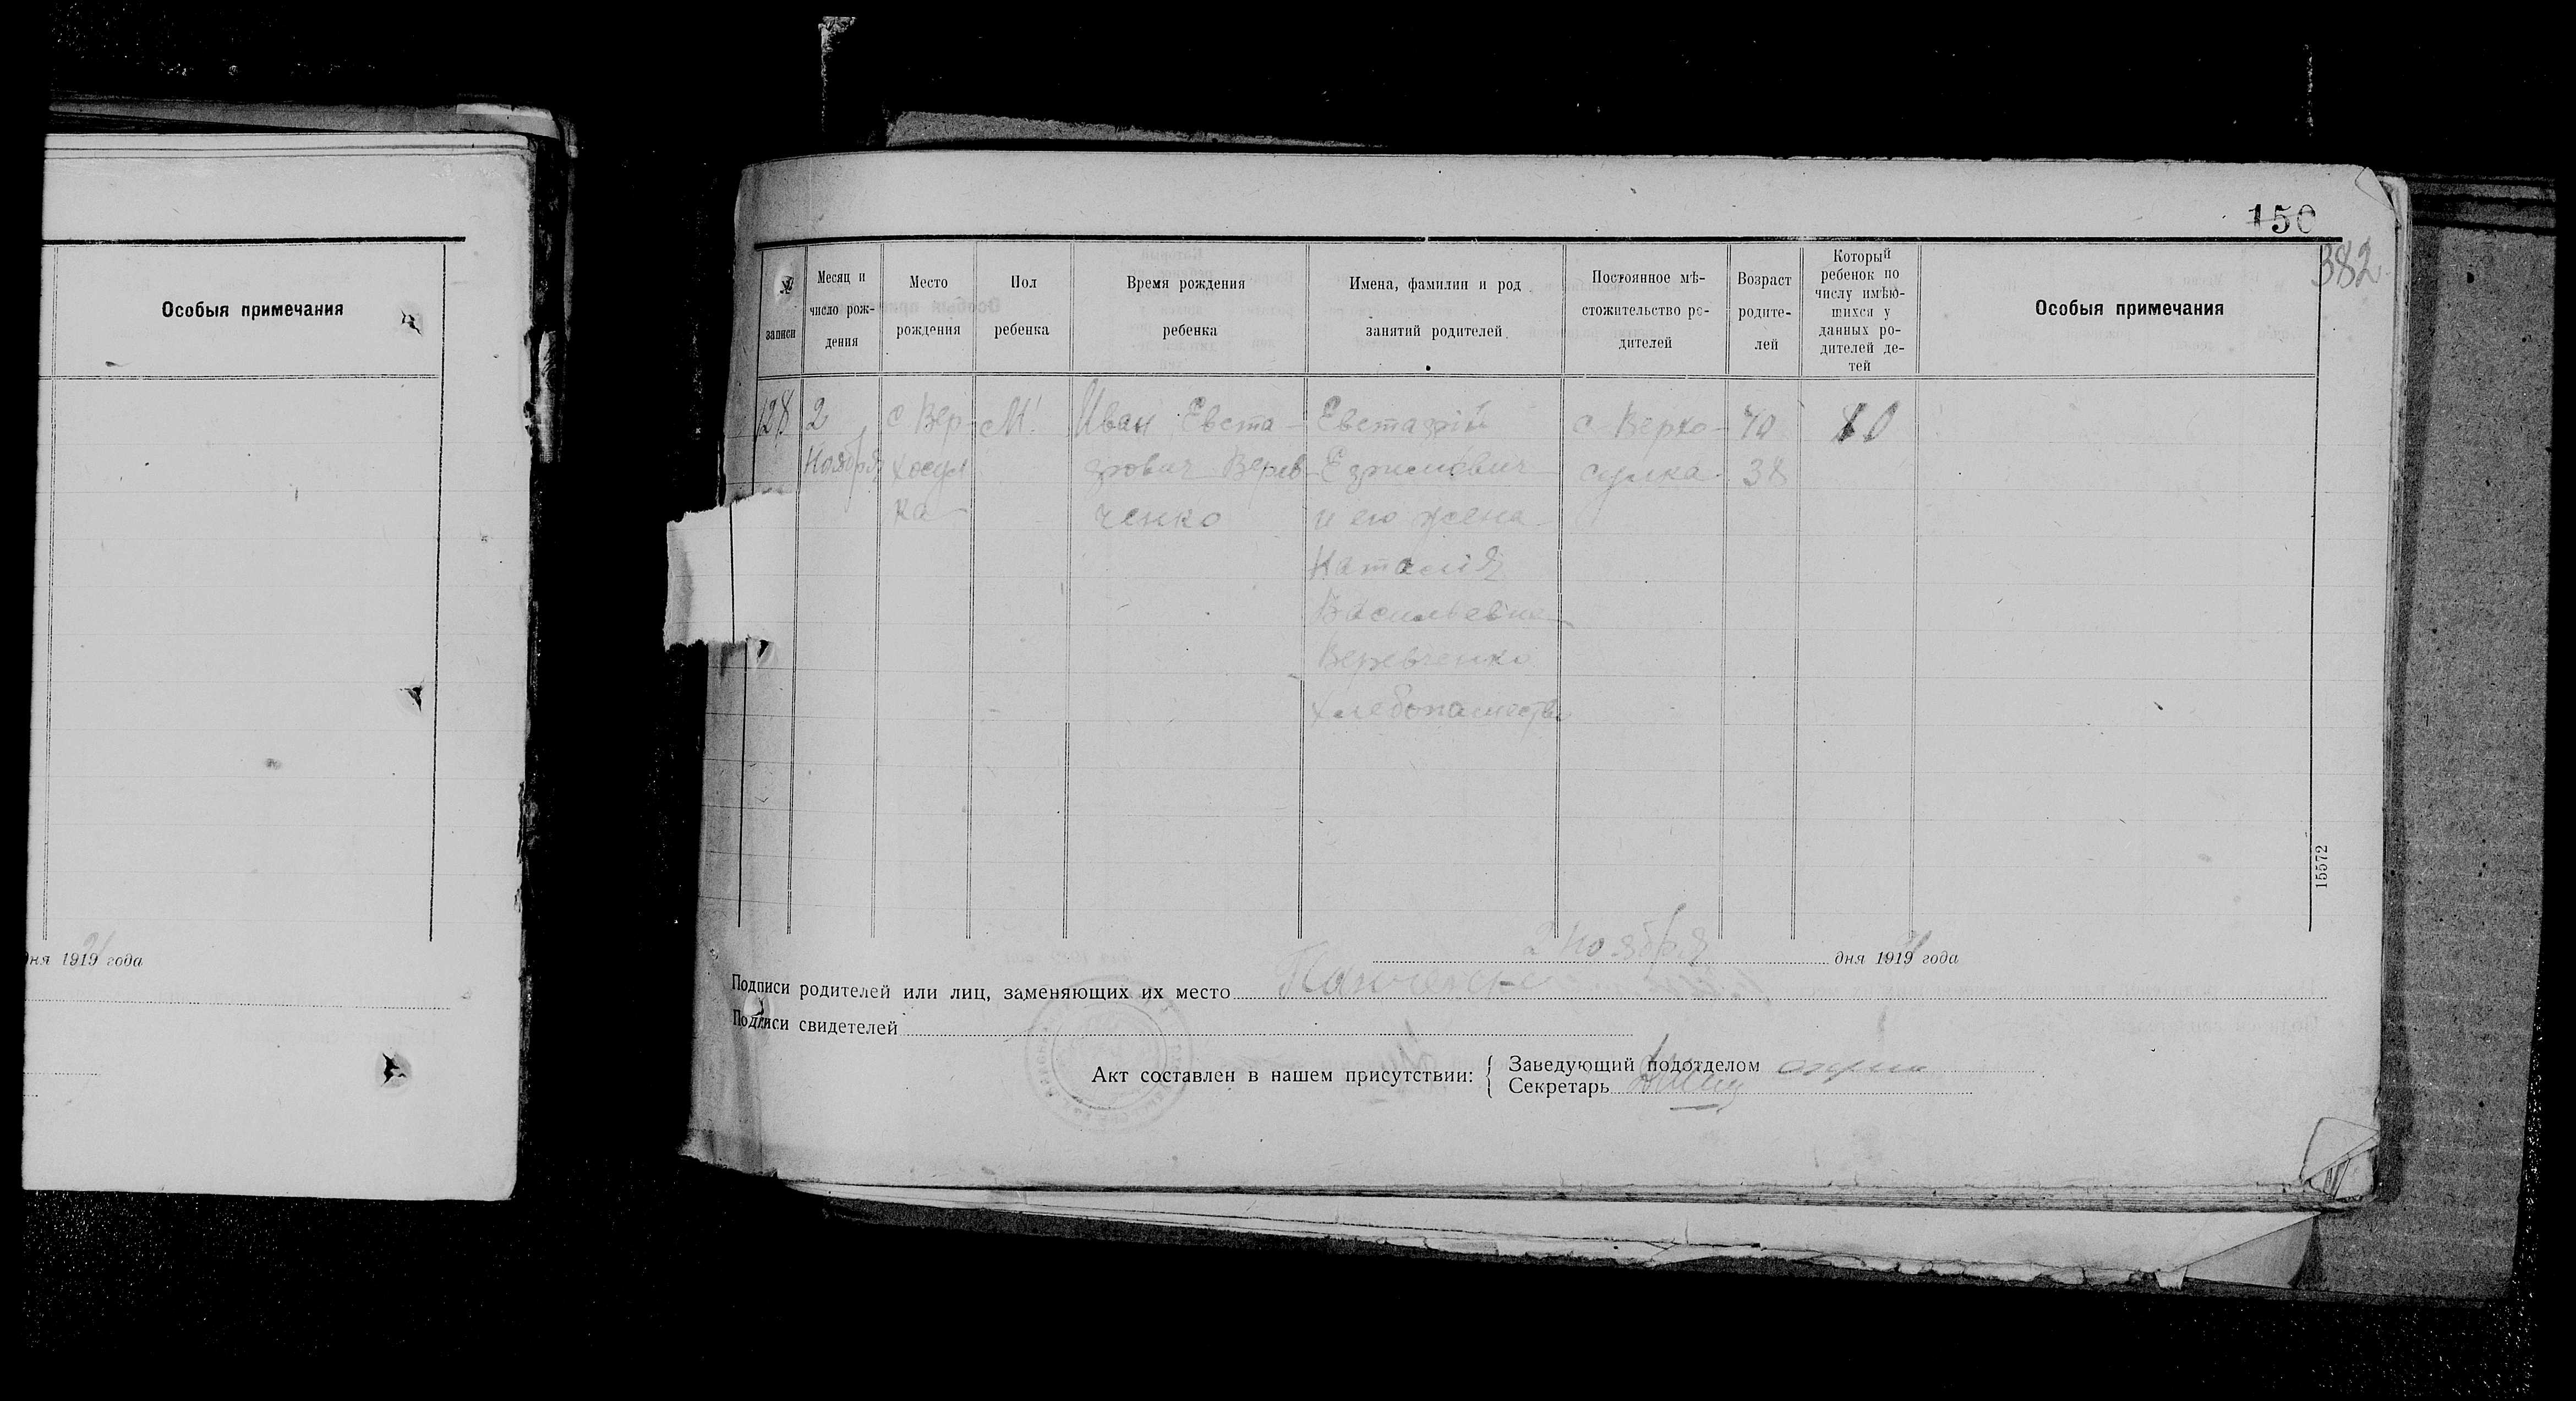 Особыя примечания
дня 1921 года
150
382
№ записи
Месяц и число рож- дения
Место рождения
Пол ребенка
Время рождения ребенка
Имена, фамилии и род занятий родителей
Постоянное мѣ- стожительство ро- дителей
Возраст родите- лей
Который ребенок по числу имѣю- щихся у данных ро- дителей де- тей
Особыя примечания
128 2 с Вер- М. Иван Евста- Евстафій с Верхо- 40 10
Ноября хосул фович Верев Ефимович сулка 38
ка ченко и его жена
Наталія
Васильевна
Веревченко
хлебопашество
15572
2 Ноября дня 1921 года
Подписи родителей или лиц, заменяющих их место
Подписи свидетелей
Акт составлен в нашем присутствии:
Заведующий подотделом
Секретарь